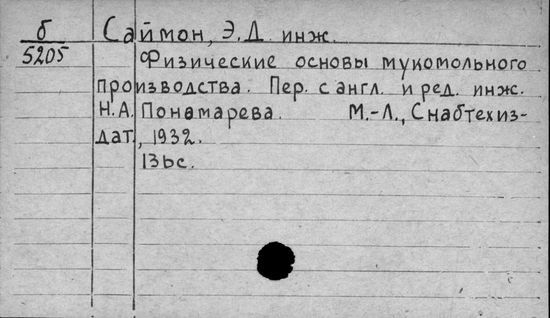 б
5205
Саймон, Э.Д. инж.
Физические основы мукомольного
производства. Пер. с англ. и ред. инж.
Н.А. Понамарева. М.-Л., Снабтехиз-
дат, 1932.
136с.